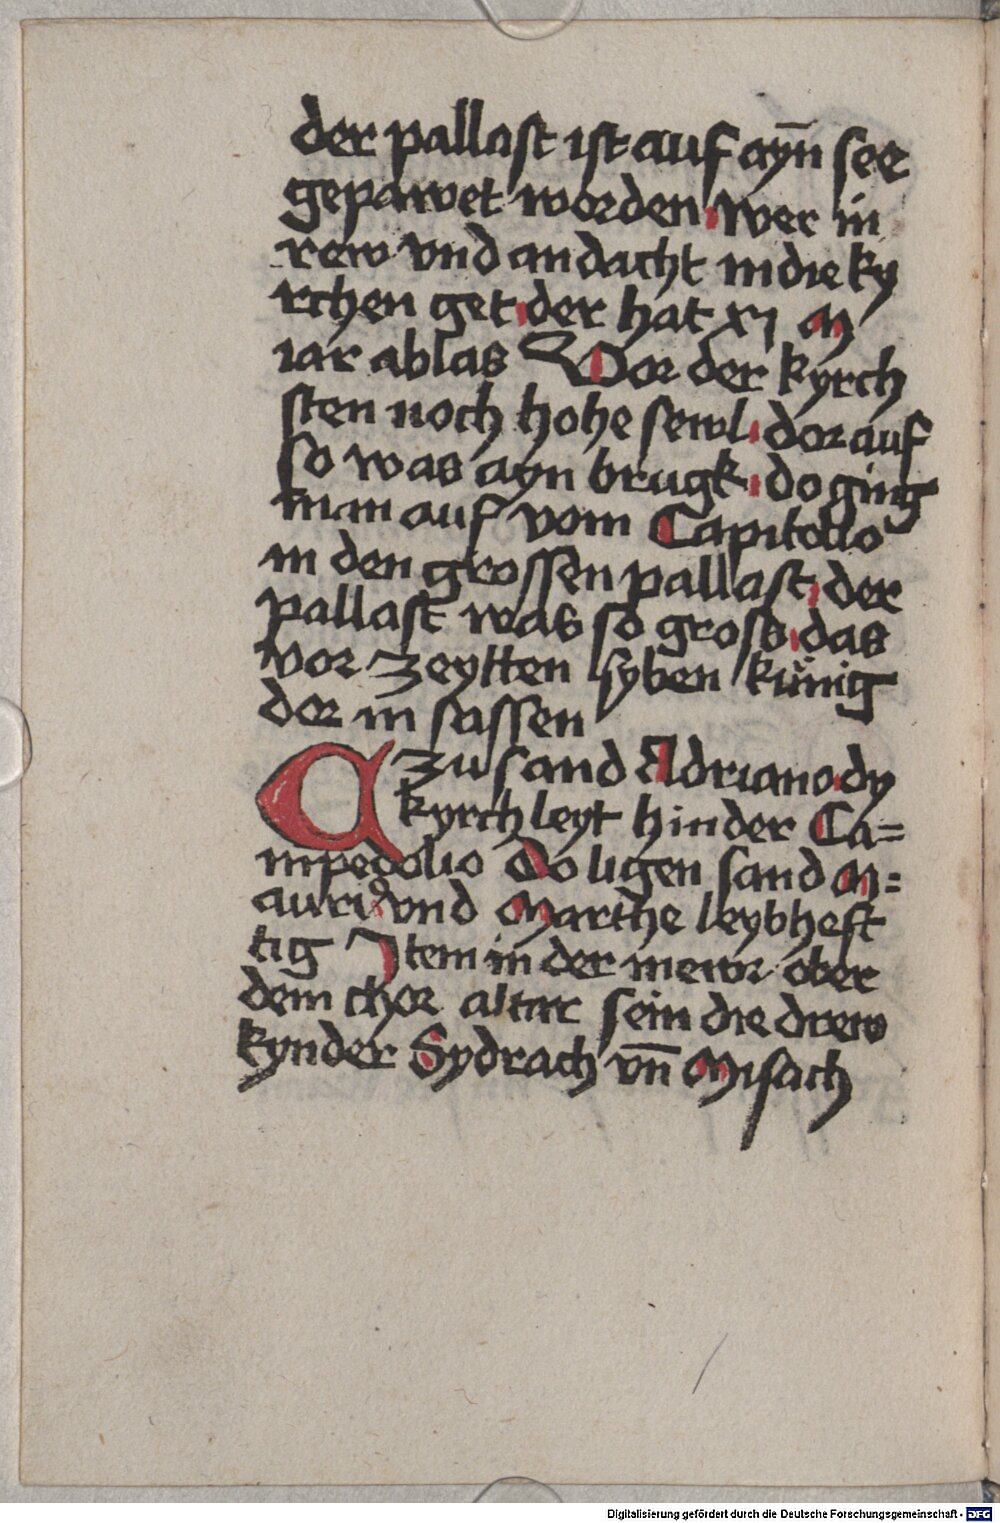 der pallast ist auf ayn̄ see
gepawet worden. wer in
rew vnd andacht in die ky
rchen get. der hat xj M
iar ablas Vor der kyrch
sten noch hohe sewl. dor auf
so was ayn brugk. do ging
man auf vom Capitolio
in den grossen pallast. der
pallast was so gross. das
vor zeytten syben künig
dor in sassen
Zu sand Adriano. dy
kyrch leyt hinder Ca=
mpedolio Do ligen sand M=
auriꝰ vnd Marthe leybheft
tig Item in der mewr ober
dem chor altar sein die drew
kynder Sydrach vn̄ Misach
Digitalisierung gefördert durch die Deutsche Forschungsgemeinschaft - DFG